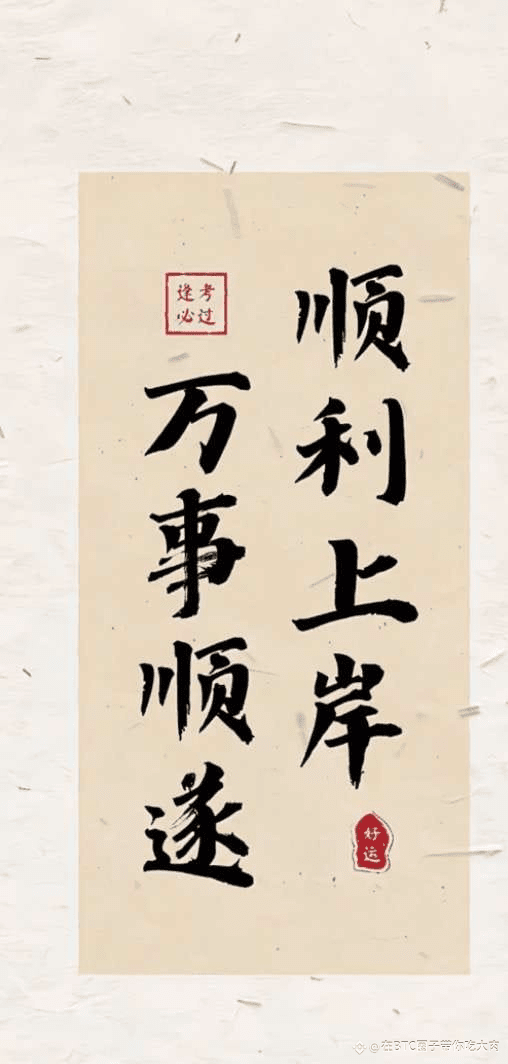 顺利上岸
好运
逢考必过
万事顺遂
@在BTC圈子带你吃大肉